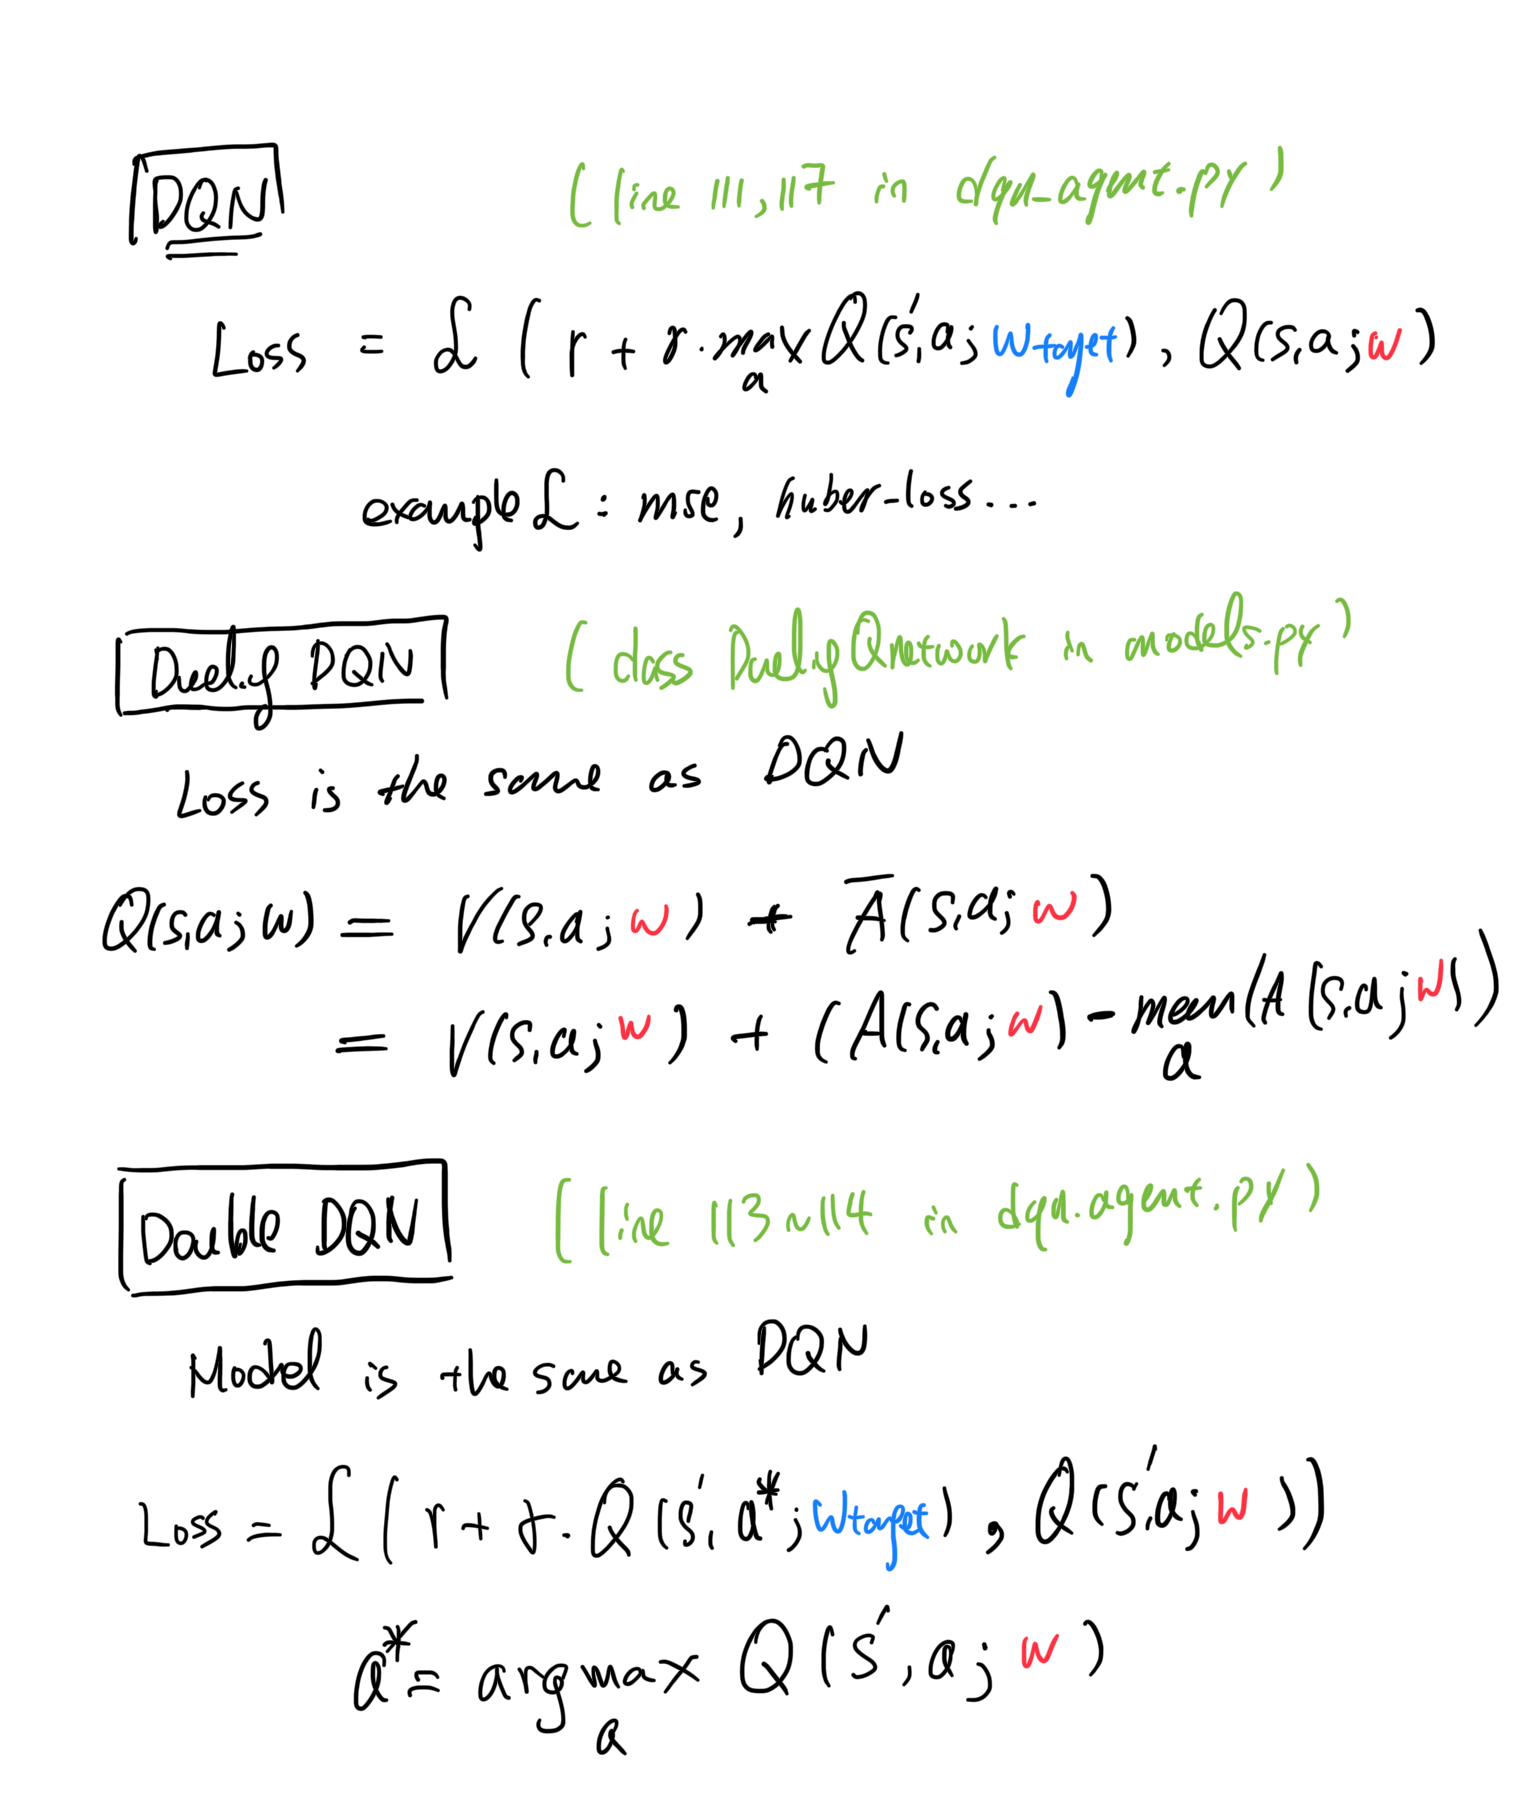 DQN (line 111, 117 in dqn_agent.py)
Loss = ℒ ( r + γ · max Q(s', a; w target), Q(s, a; w)
a
example ℒ : mse, huber-loss...
Dueling DQN (class DuelingQnetwork in models.py)
Loss is the same as DQN
Q(s, a; w) = V(s, a; w) + A̅(s, a; w)
= V(s, a; w) + (A(s, a; w) - mean(A(s, a; w)))
a
Double DQN (line 113~114 in dqn_agent.py)
Model is the same as DQN
Loss = ℒ ( r + γ · Q(s', a*; w target), Q(s', a; w))
a* = argmax Q(s', a; w)
a